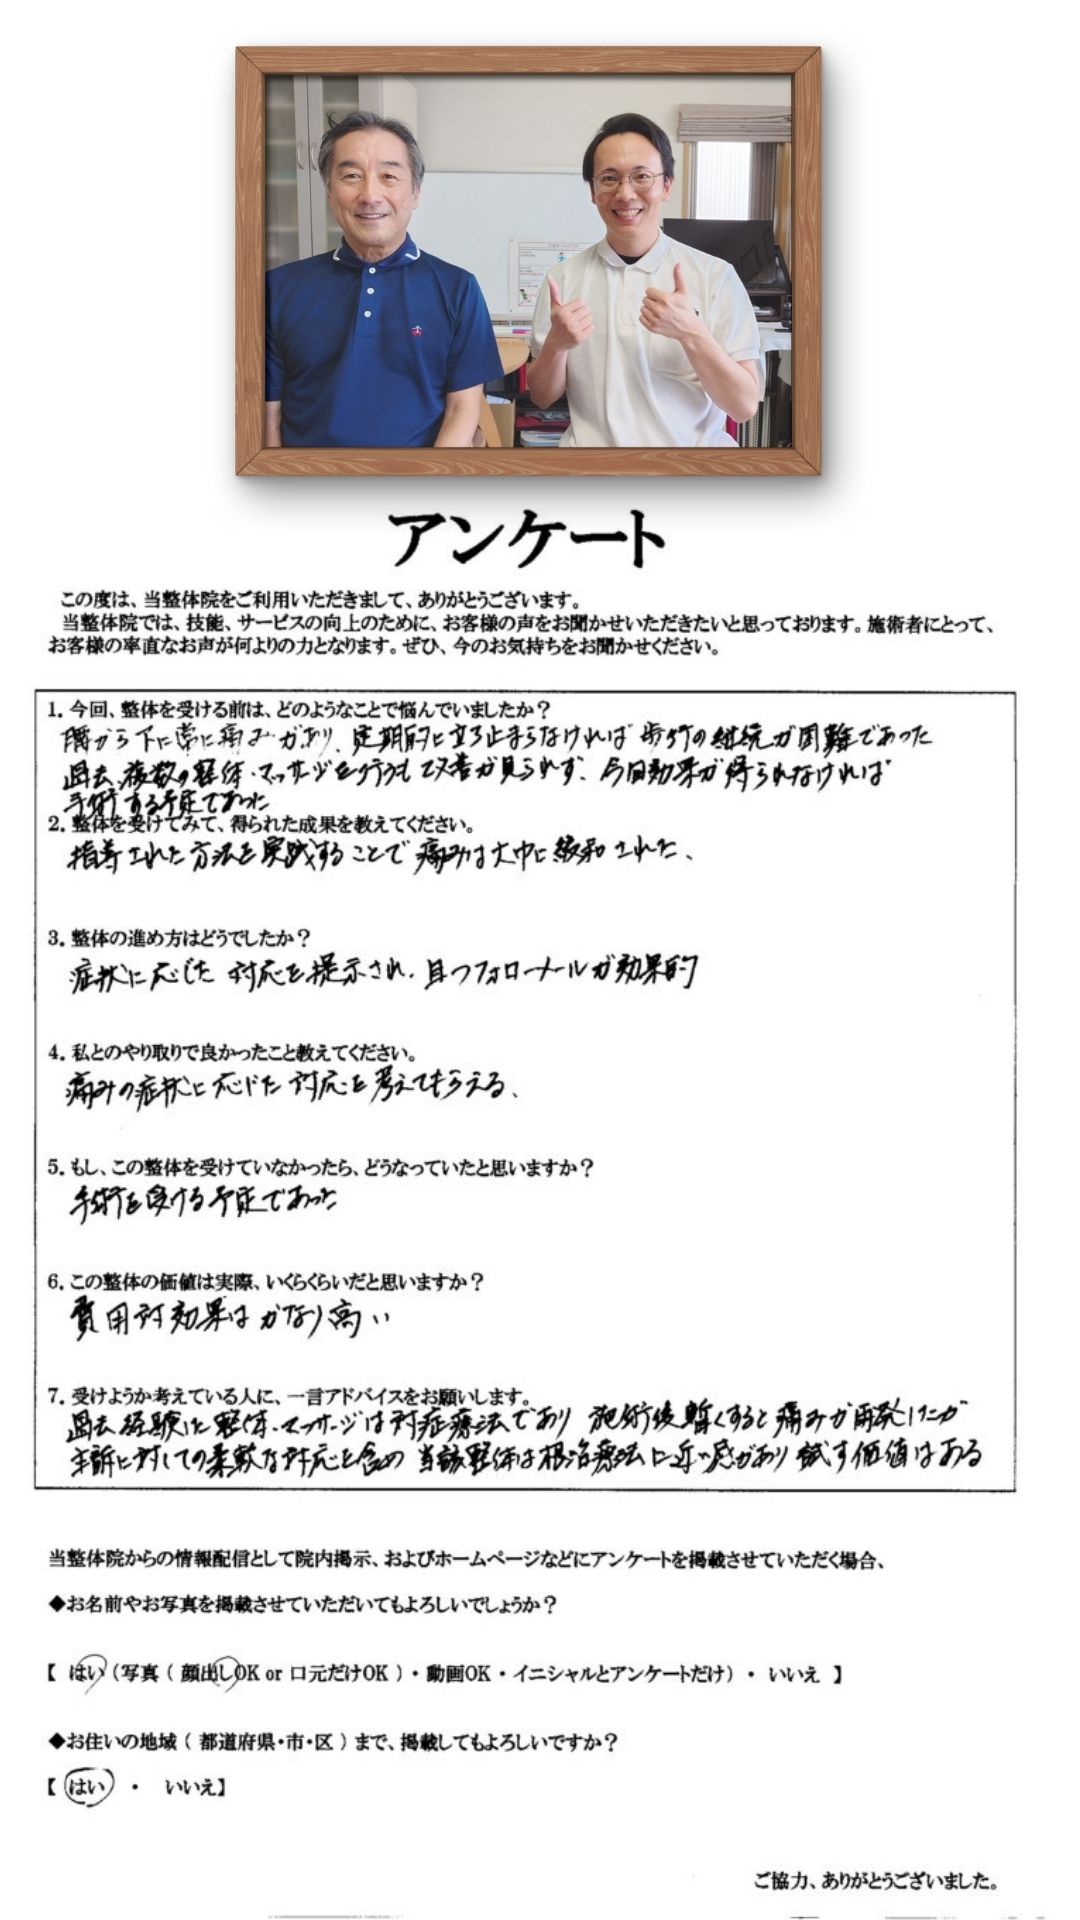 アンケート
この度は、当整体院をご利用いただきまして、ありがとうございます。
当整体院では、技能、サービスの向上のために、お客様の声をお聞かせいただきたいと思っております。施術者にとって、
お客様の率直なお声が何よりの力となります。ぜひ、今のお気持ちをお聞かせください。
1. 今回、整体を受ける前は、どのようなことで悩んでいましたか？
腰から下に常に痛みがあり、定期的に立ち止まらなければ歩行の継続が困難であった
過去、複数の整体・マッサージを行うも改善が見られず、今回効果が得られなければ
手術する予定であった
2. 整体を受けてみて、得られた成果を教えてください。
指導された方法を実践することで痛みは大巾に緩和された、
3. 整体の進め方はどうでしたか？
症状に応じた対応を提示され、且つフォローメールが効果的
4. 私とのやり取りで良かったこと教えてください。
痛みの症状に応じた対応を考えてもらえる、
5. もし、この整体を受けていなかったら、どうなっていたと思いますか？
手術を受ける予定であった
6. この整体の価値は実際、いくらくらいだと思いますか？
費用対効果はかなり高い
7. 受けようか考えている人に、一言アドバイスをお願いします。
過去経験した整体・マッサージは対症療法であり 施術後暫くすると痛みが再発したが
主訴に対しての柔軟な対応を含め 当該整体は根治療法に近い感があり 試す価値はある
当整体院からの情報配信として院内掲示、およびホームページなどにアンケートを掲載させていただく場合、
◆お名前やお写真を掲載させていただいてもよろしいでしょうか？
【 はい（写真（ 顔出しOK or 口元だけOK ）・動画OK・イニシャルとアンケートだけ）・ いいえ 】
◆お住いの地域（ 都道府県・市・区 ）まで、掲載してもよろしいですか？
【 はい ・ いいえ】
ご協力、ありがとうございました。